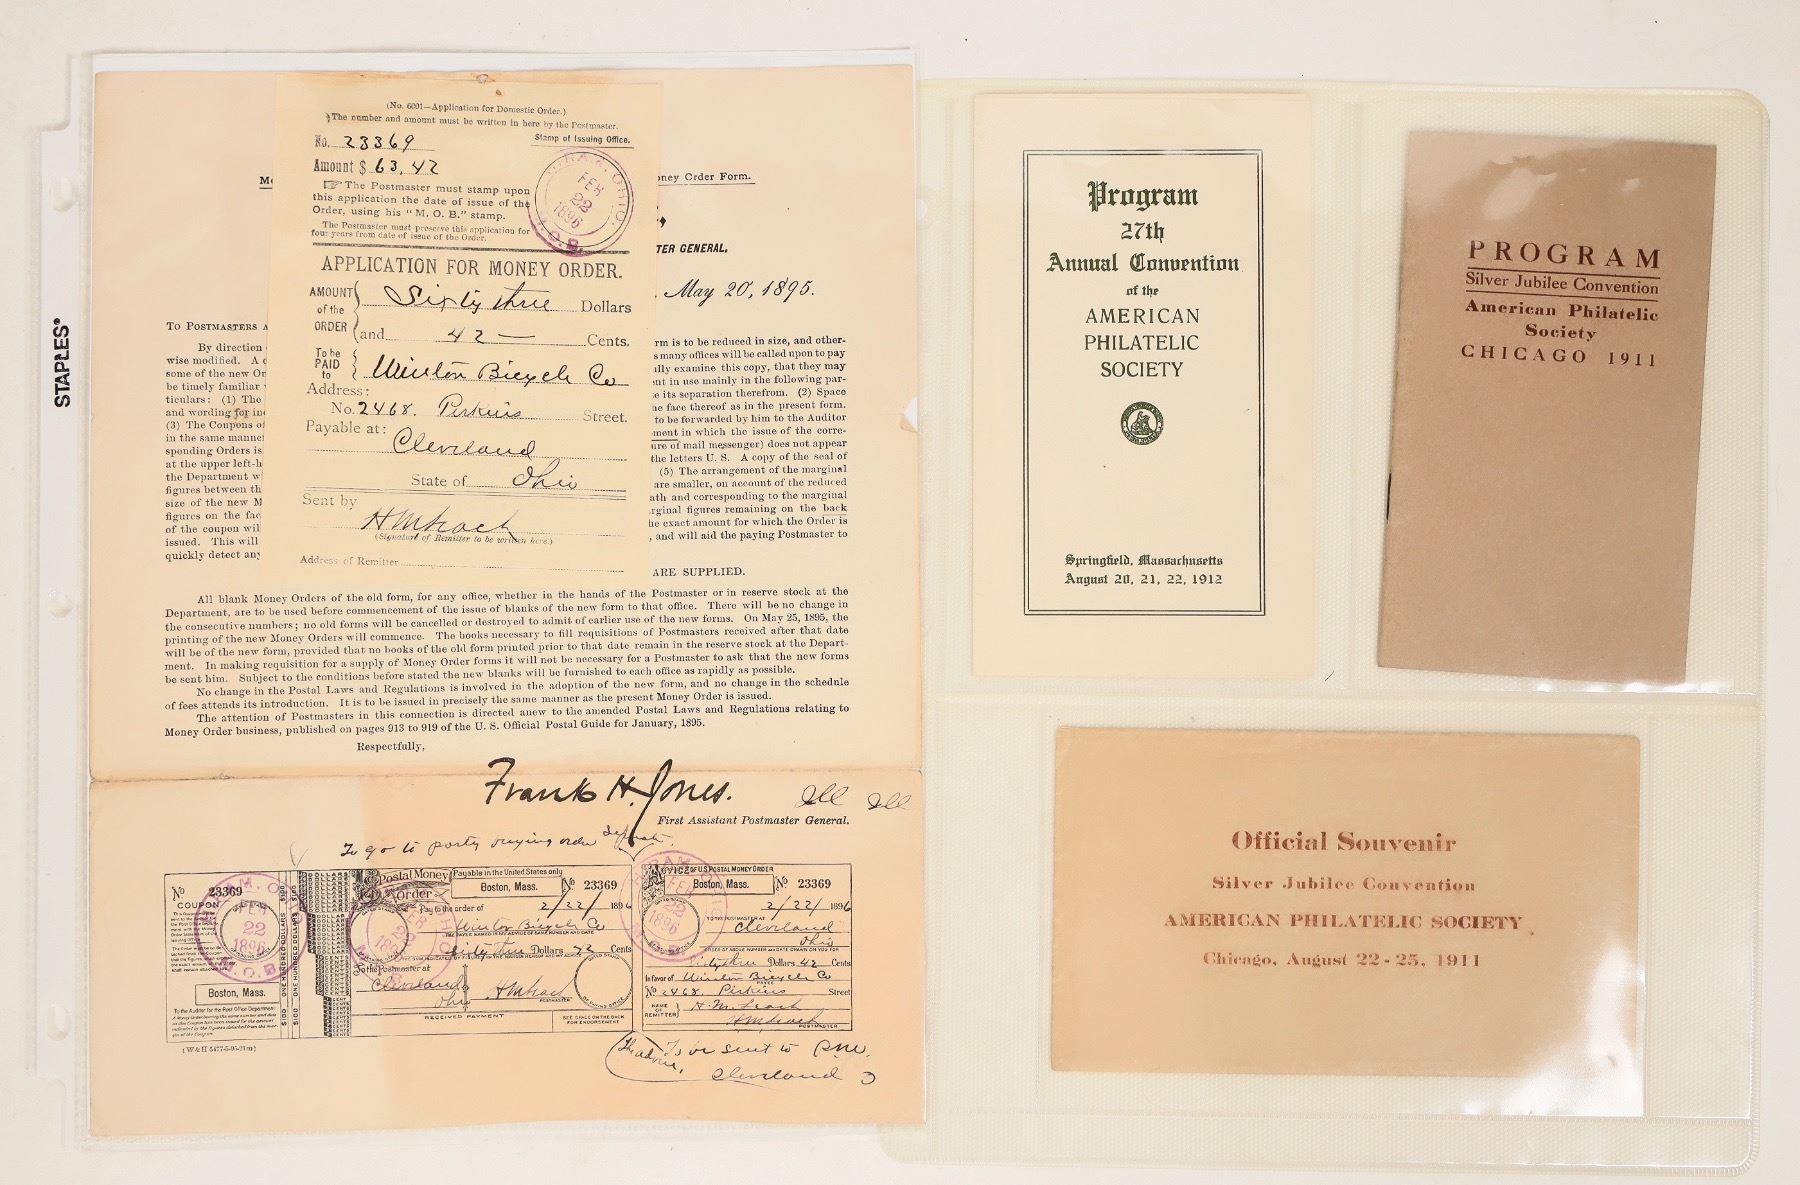 STAPLES®
(No. 6001—Application for Domestic Order.)
The number and amount must be written in here by the Postmaster.
No. 23369
Stamp of Issuing Office.
Amount $ 63.42
The Postmaster must stamp upon
this application the date of issue of the
Order, using his "M. O. B." stamp.
The Postmaster must preserve this application for
four years from date of issue of the Order.
OHIO.
FEB
22
1896
M.O.B.
APPLICATION FOR MONEY ORDER.
AMOUNT of the ORDER
Sixty three Dollars
and 42 — Cents.
To be PAID to
Winton Bicycle Co
Address:
No. 2468. Perkins Street.
Payable at:
Cleveland
State of Ohio
Sent by
(Signature of Remitter to be written here.)
Address of Remitter
oney Order Form.
TER GENERAL,
May 20, 1895.
TO POSTMASTERS A
By direction
rm is to be reduced in size, and other-
wise modified. A c
s many offices will be called upon to pay
some of the new Or
lly examine this copy, that they may
be timely familiar
nt in use mainly in the following par-
ticulars: (1) The
e its separation therefrom. (2) Space
and wording for in
he face thereof as in the present form.
(3) The Coupons of
to be forwarded by him to the Auditor
in the same manner
ment in which the issue of the corre-
sponding Orders is
ure of mail messenger) does not appear
at the upper left-h
the letters U. S. A copy of the seal of
the Department w
(5) The arrangement of the marginal
figures between th
are smaller, on account of the reduced
size of the new M
ath and corresponding to the marginal
figures on the fac
rginal figures remaining on the back
of the coupon wil
he exact amount for which the Order is
issued. This will
, and will aid the paying Postmaster to
quickly detect any
ARE SUPPLIED.
All blank Money Orders of the old form, for any office, whether in the hands of the Postmaster or in reserve stock at the
Department, are to be used before commencement of the issue of blanks of the new form to that office. There will be no change in
the consecutive numbers; no old forms will be cancelled or destroyed to admit of earlier use of the new forms. On May 25, 1895, the
printing of the new Money Orders will commence. The books necessary to fill requisitions of Postmasters received after that date
will be of the new form, provided that no books of the old form printed prior to that date remain in the reserve stock at the Depart-
ment. In making requisition for a supply of Money Order forms it will not be necessary for a Postmaster to ask that the new forms
be sent him. Subject to the conditions before stated the new blanks will be furnished to each office as rapidly as possible.
No change in the Postal Laws and Regulations is involved in the adoption of the new form, and no change in the schedule
of fees attends its introduction. It is to be issued in precisely the same manner as the present Money Order is issued.
The attention of Postmasters in this connection is directed anew to the amended Postal Laws and Regulations relating to
Money Order business, published on pages 913 to 919 of the U. S. Official Postal Guide for January, 1895.
Respectfully,
Frank H. Jones.
First Assistant Postmaster General.
To go to party buying order
No 23369
COUPON
FEB
22
1896
M.O.B.
Boston, Mass.
To the Auditor for the Post Office Department:
(W & H 5477-5-95-21m)
Postal Money Order
Payable in the United States only
Boston, Mass.
No 23369
2/22/ 1896
Pay to the order of
Winton Bicycle Co
Sixty three Dollars 42 Cents
To the Postmaster at
Cleveland
Ohio
POSTMASTER
RECEIVED PAYMENT
SEE SPACE ON THE BACK
FOR ENDORSEMENT
OF U.S. POSTAL MONEY ORDER
Boston, Mass.
No 23369
2/22/ 1896
TO THE POSTMASTER AT
Cleveland
Ohio
Dollars 42 Cents
In favor of Winton Bicycle Co
PAYEE
No 2468. Perkins Street
NAME OF REMITTER
POSTMASTER
The advice, To be sent to P.M.
Cleveland O
Program
27th
Annual Convention
of the
AMERICAN
PHILATELIC
SOCIETY
Springfield, Massachusetts
August 20, 21, 22, 1912
PROGRAM
Silver Jubilee Convention
American Philatelic
Society
CHICAGO 1911
Official Souvenir
Silver Jubilee Convention
AMERICAN PHILATELIC SOCIETY
Chicago, August 22-25, 1911